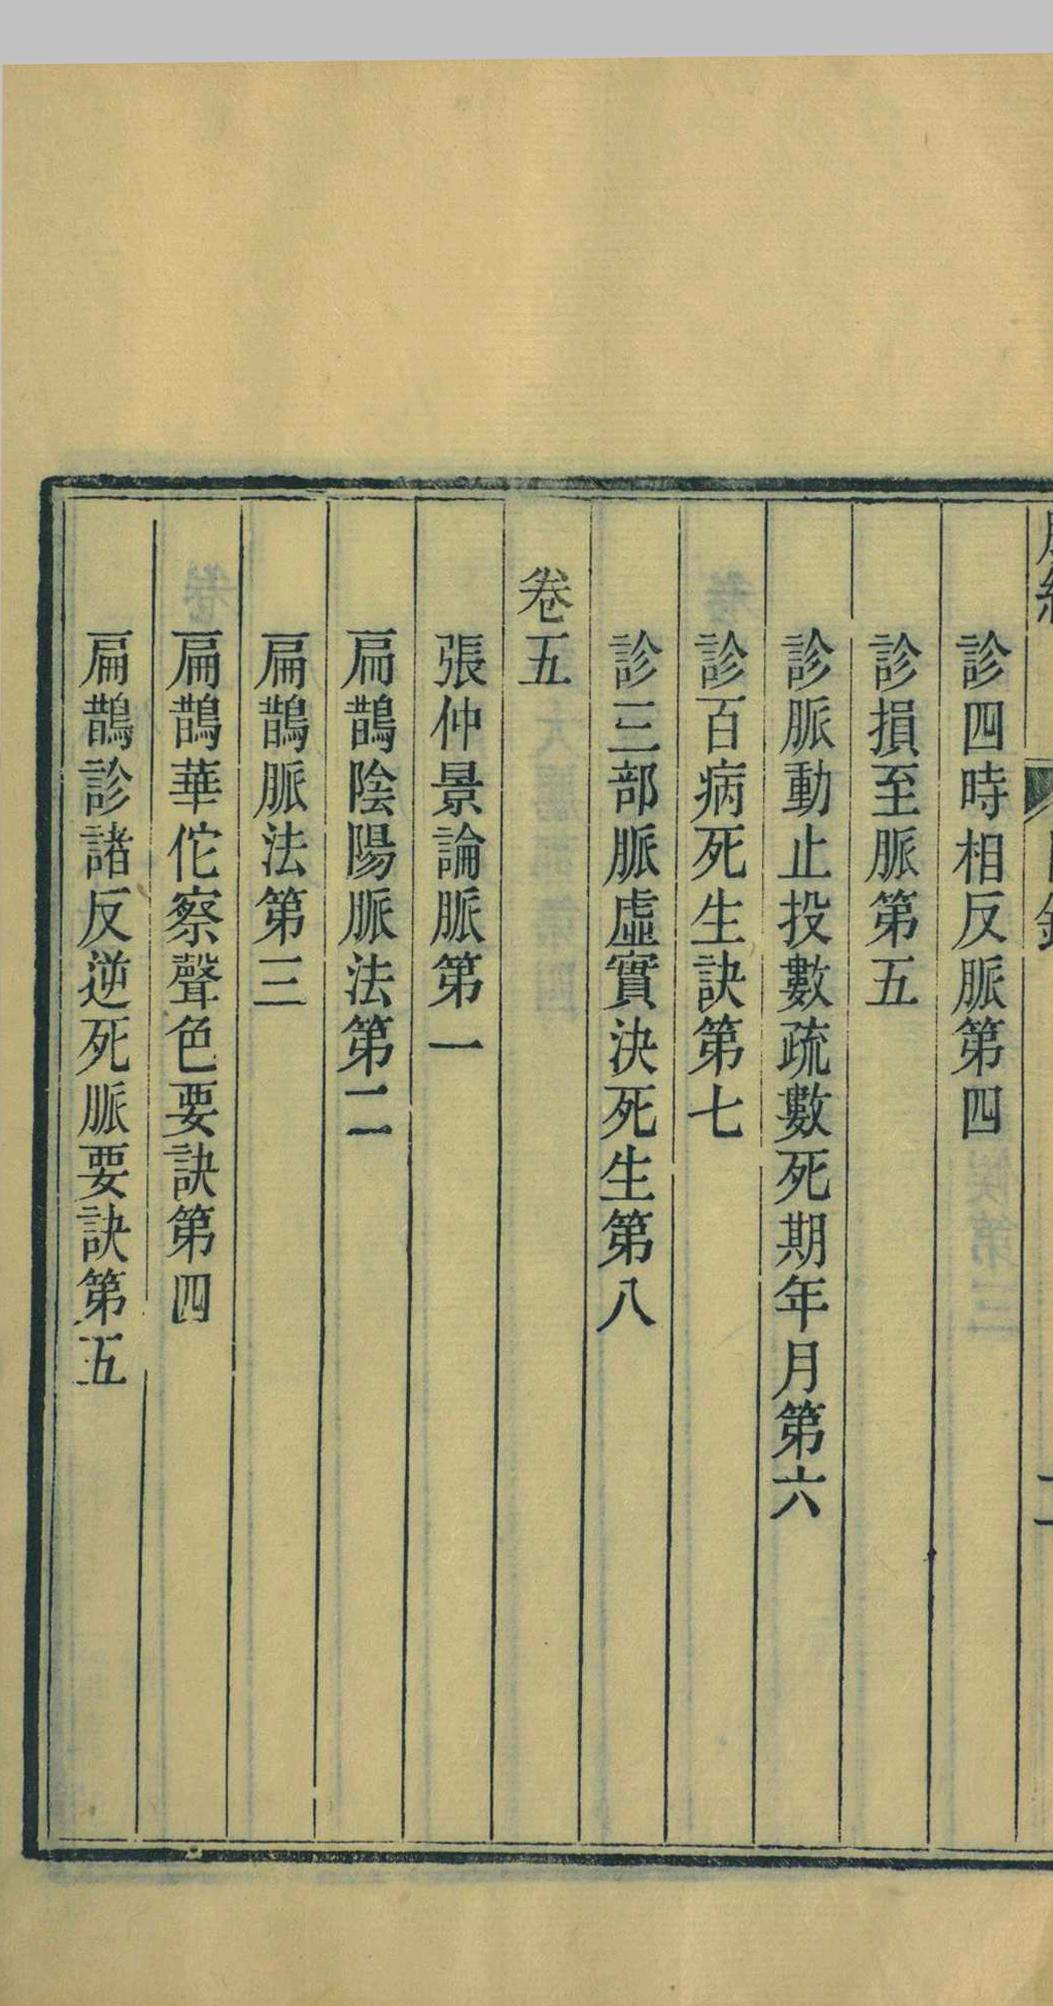 診四時相反脈第四
診損至脈第五
診脈動止投數疏數死期年月第六
診百病死生訣第七
診三部脈虛實決死生第八
卷五
張仲景論脈第一
扁鵲陰陽脈法第二
扁鵲脈法第三
扁鵲華佗察聲色要訣第四
扁鵲診諸反逆死脈要訣第五